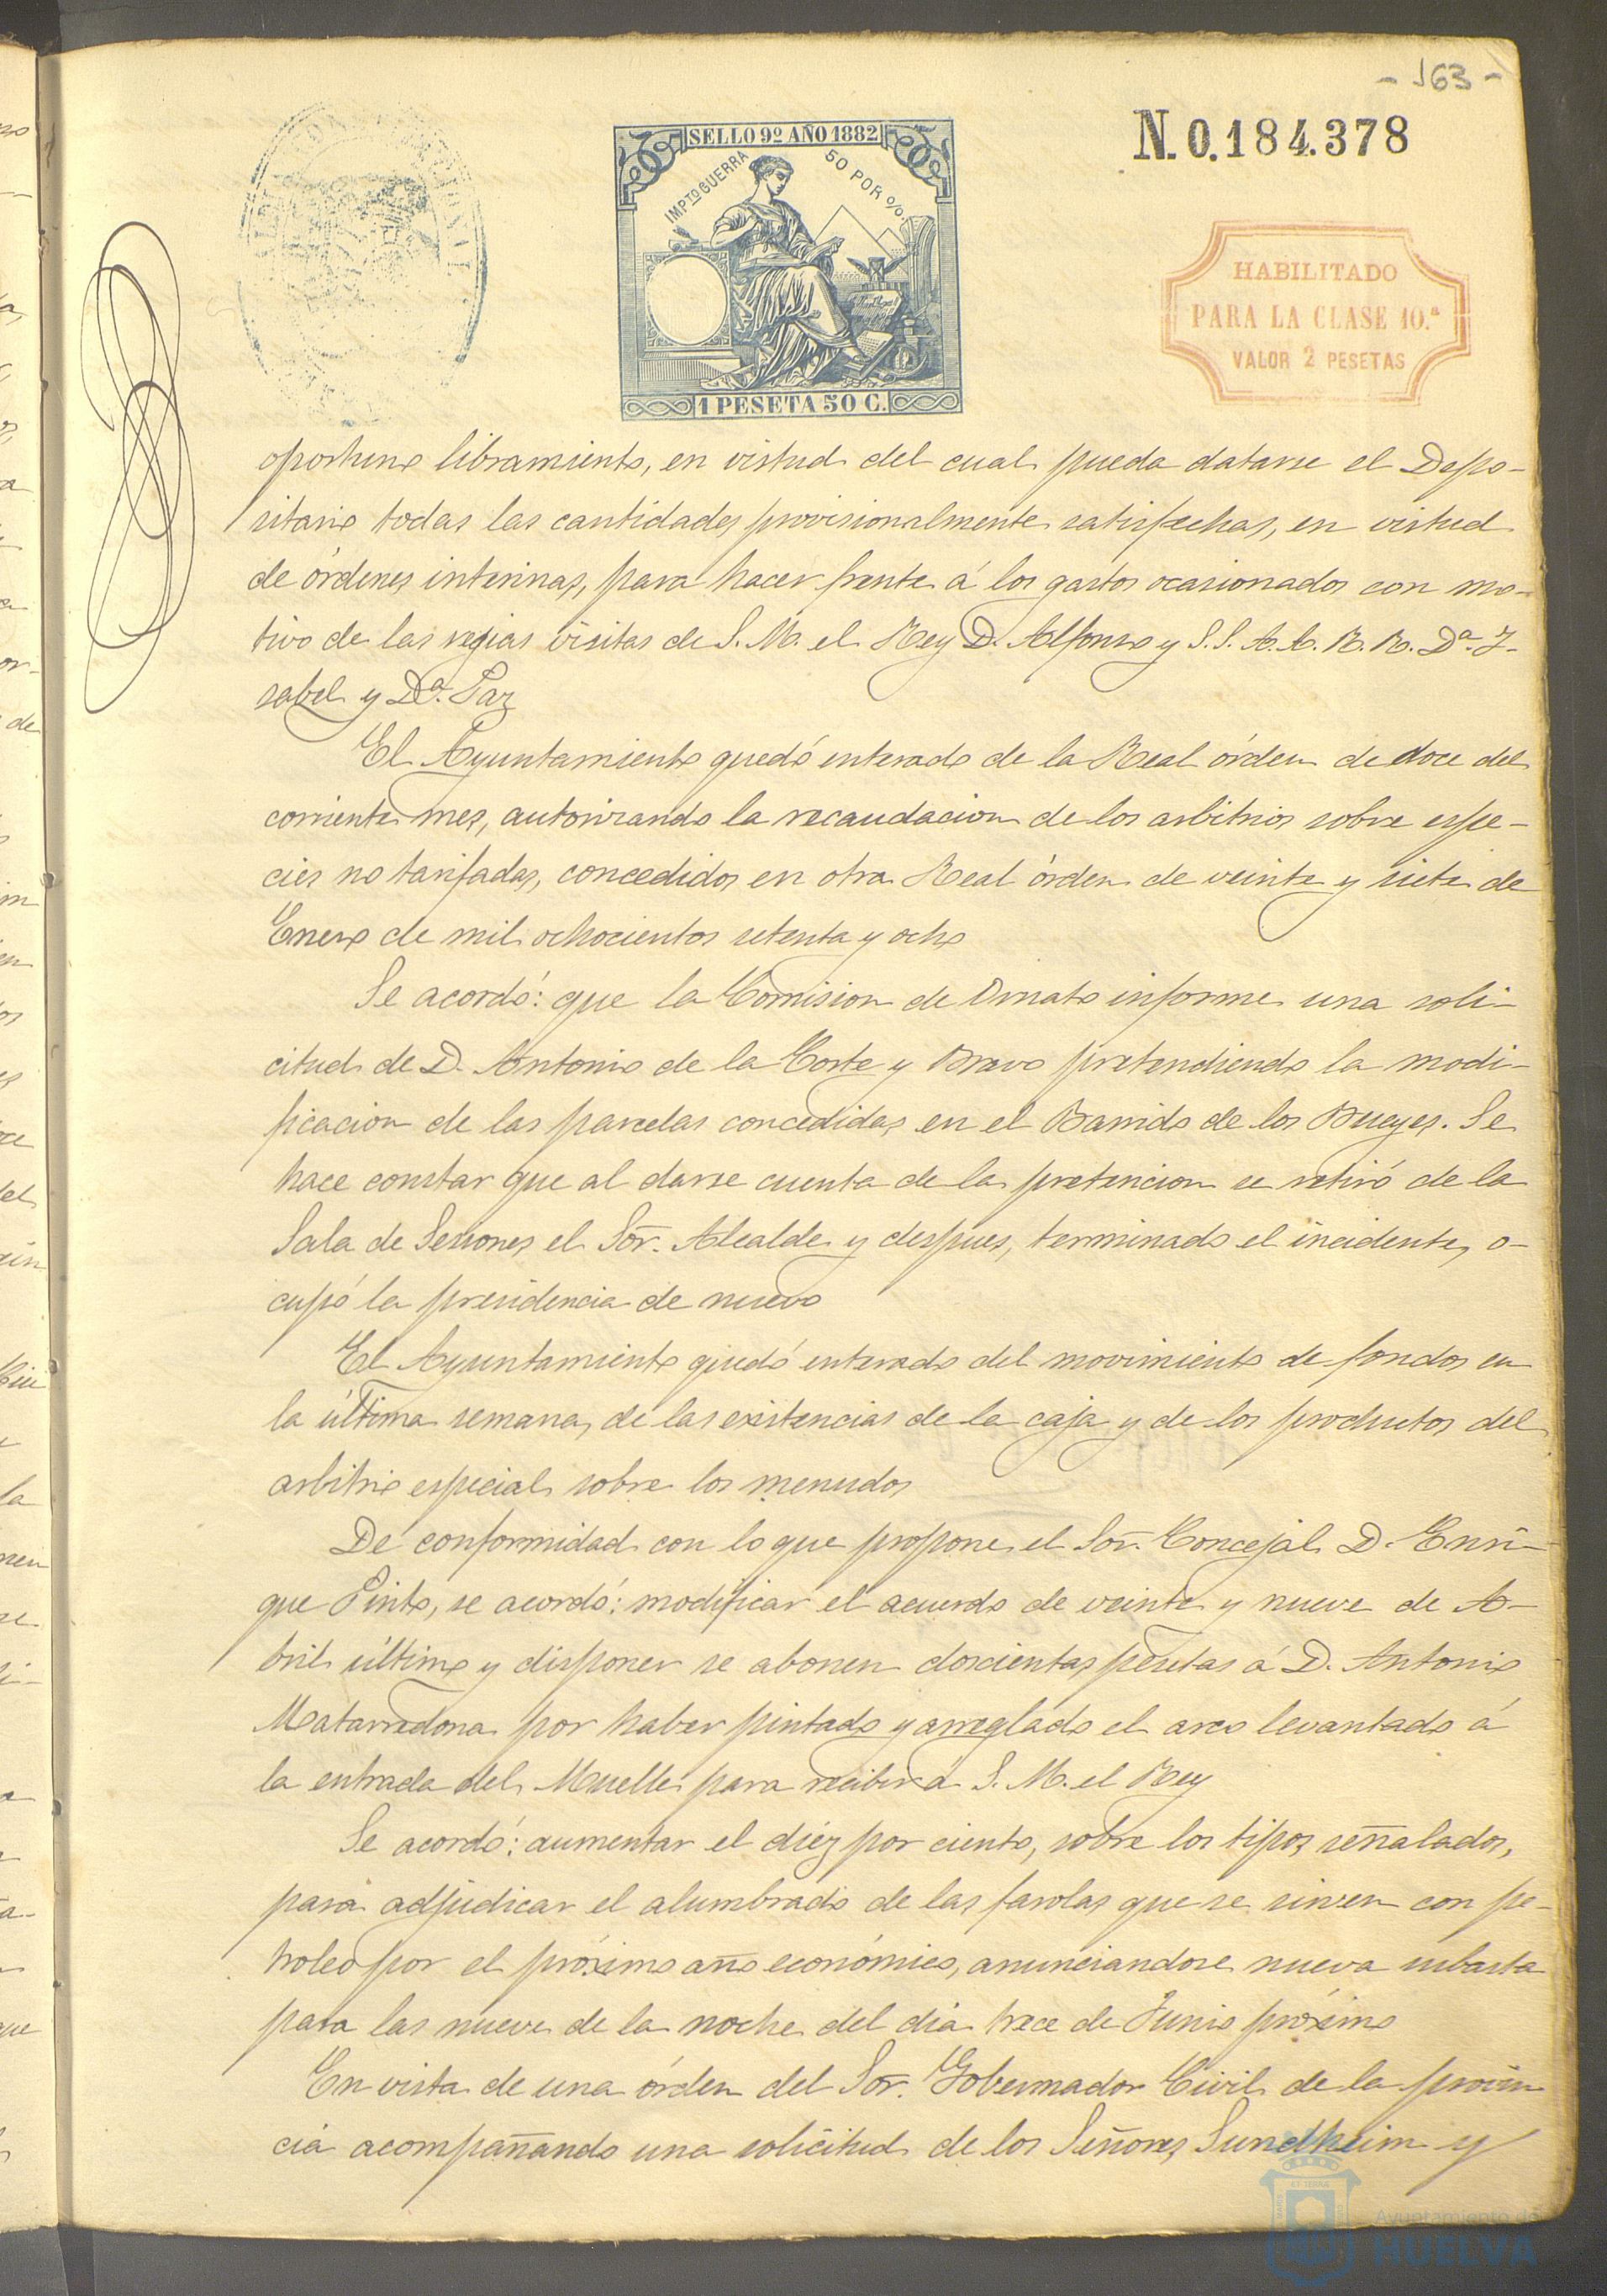 - 163 -
N. 0.184.378
SELLO 9º AÑO 1882
IMPTO GUERRA 50 POR 0/0.
1 PESETA 50 C.
HABILITADO
PARA LA CLASE 10.ª
VALOR 2 PESETAS
oportuno libramiento, en virtud del cual pueda datarse el Depo-
sitario todas las cantidades provisionalmente satisfechas, en virtud
de órdenes interinas, para hacer frente á los gastos ocasionados con mo-
tivo de las regias visitas de S. M. el Rey D. Alfonso y S.S. A.A. R. R. Dª. I-
sabel y Dª. Paz
El Ayuntamiento quedó enterado de la Real órden de doce del
corriente mes, autorizando la recaudacion de los arbitrios sobre espe-
cies no tarifadas, concedidos en otra Real órden de veinte y siete de
Enero de mil ochocientos setenta y ocho
Se acordó: que la Comision de Ornato informe una soli-
citud de D. Antonio de la Corte y Bravo pretendiendo la modi-
ficacion de las parcelas concedidas en el Barrido de los Bueyes. Se
hace constar que al darse cuenta de la pretencion se retiró de la
Sala de Sesiones el Sor. Alcalde y despues, terminado el incidente, o-
cupó la presidencia de nuevo
El Ayuntamiento quedó enterado del movimiento de fondos en
la última semana, de las existencias de la caja y de los productos del
arbitrio especial sobre los menudos
De conformidad con lo que propone el Sor. Concejal D. Enri-
que Pinto, se acordó: modificar el acuerdo de veinte y nueve de A-
bril último y disponer se abonen doscientas pesetas á D. Antonio
Matarredona por haber pintado y arreglado el arco levantado á
la entrada del Muelle para recibir á S. M. el Rey
Se acordó: aumentar el diéz por ciento, sobre los tipos señalados,
para adjudicar el alumbrado de las farolas que se sirven con pe-
troleo por el próximo año económico, anunciandose nueva subasta
para las nueve de la noche del dia trece de Junio próximo
En vista de una órden del Sor. Gobernador Civil de la provin
cia acompañando una solicitud de los Señores Sundheim y
Ayuntamiento de
HUELVA